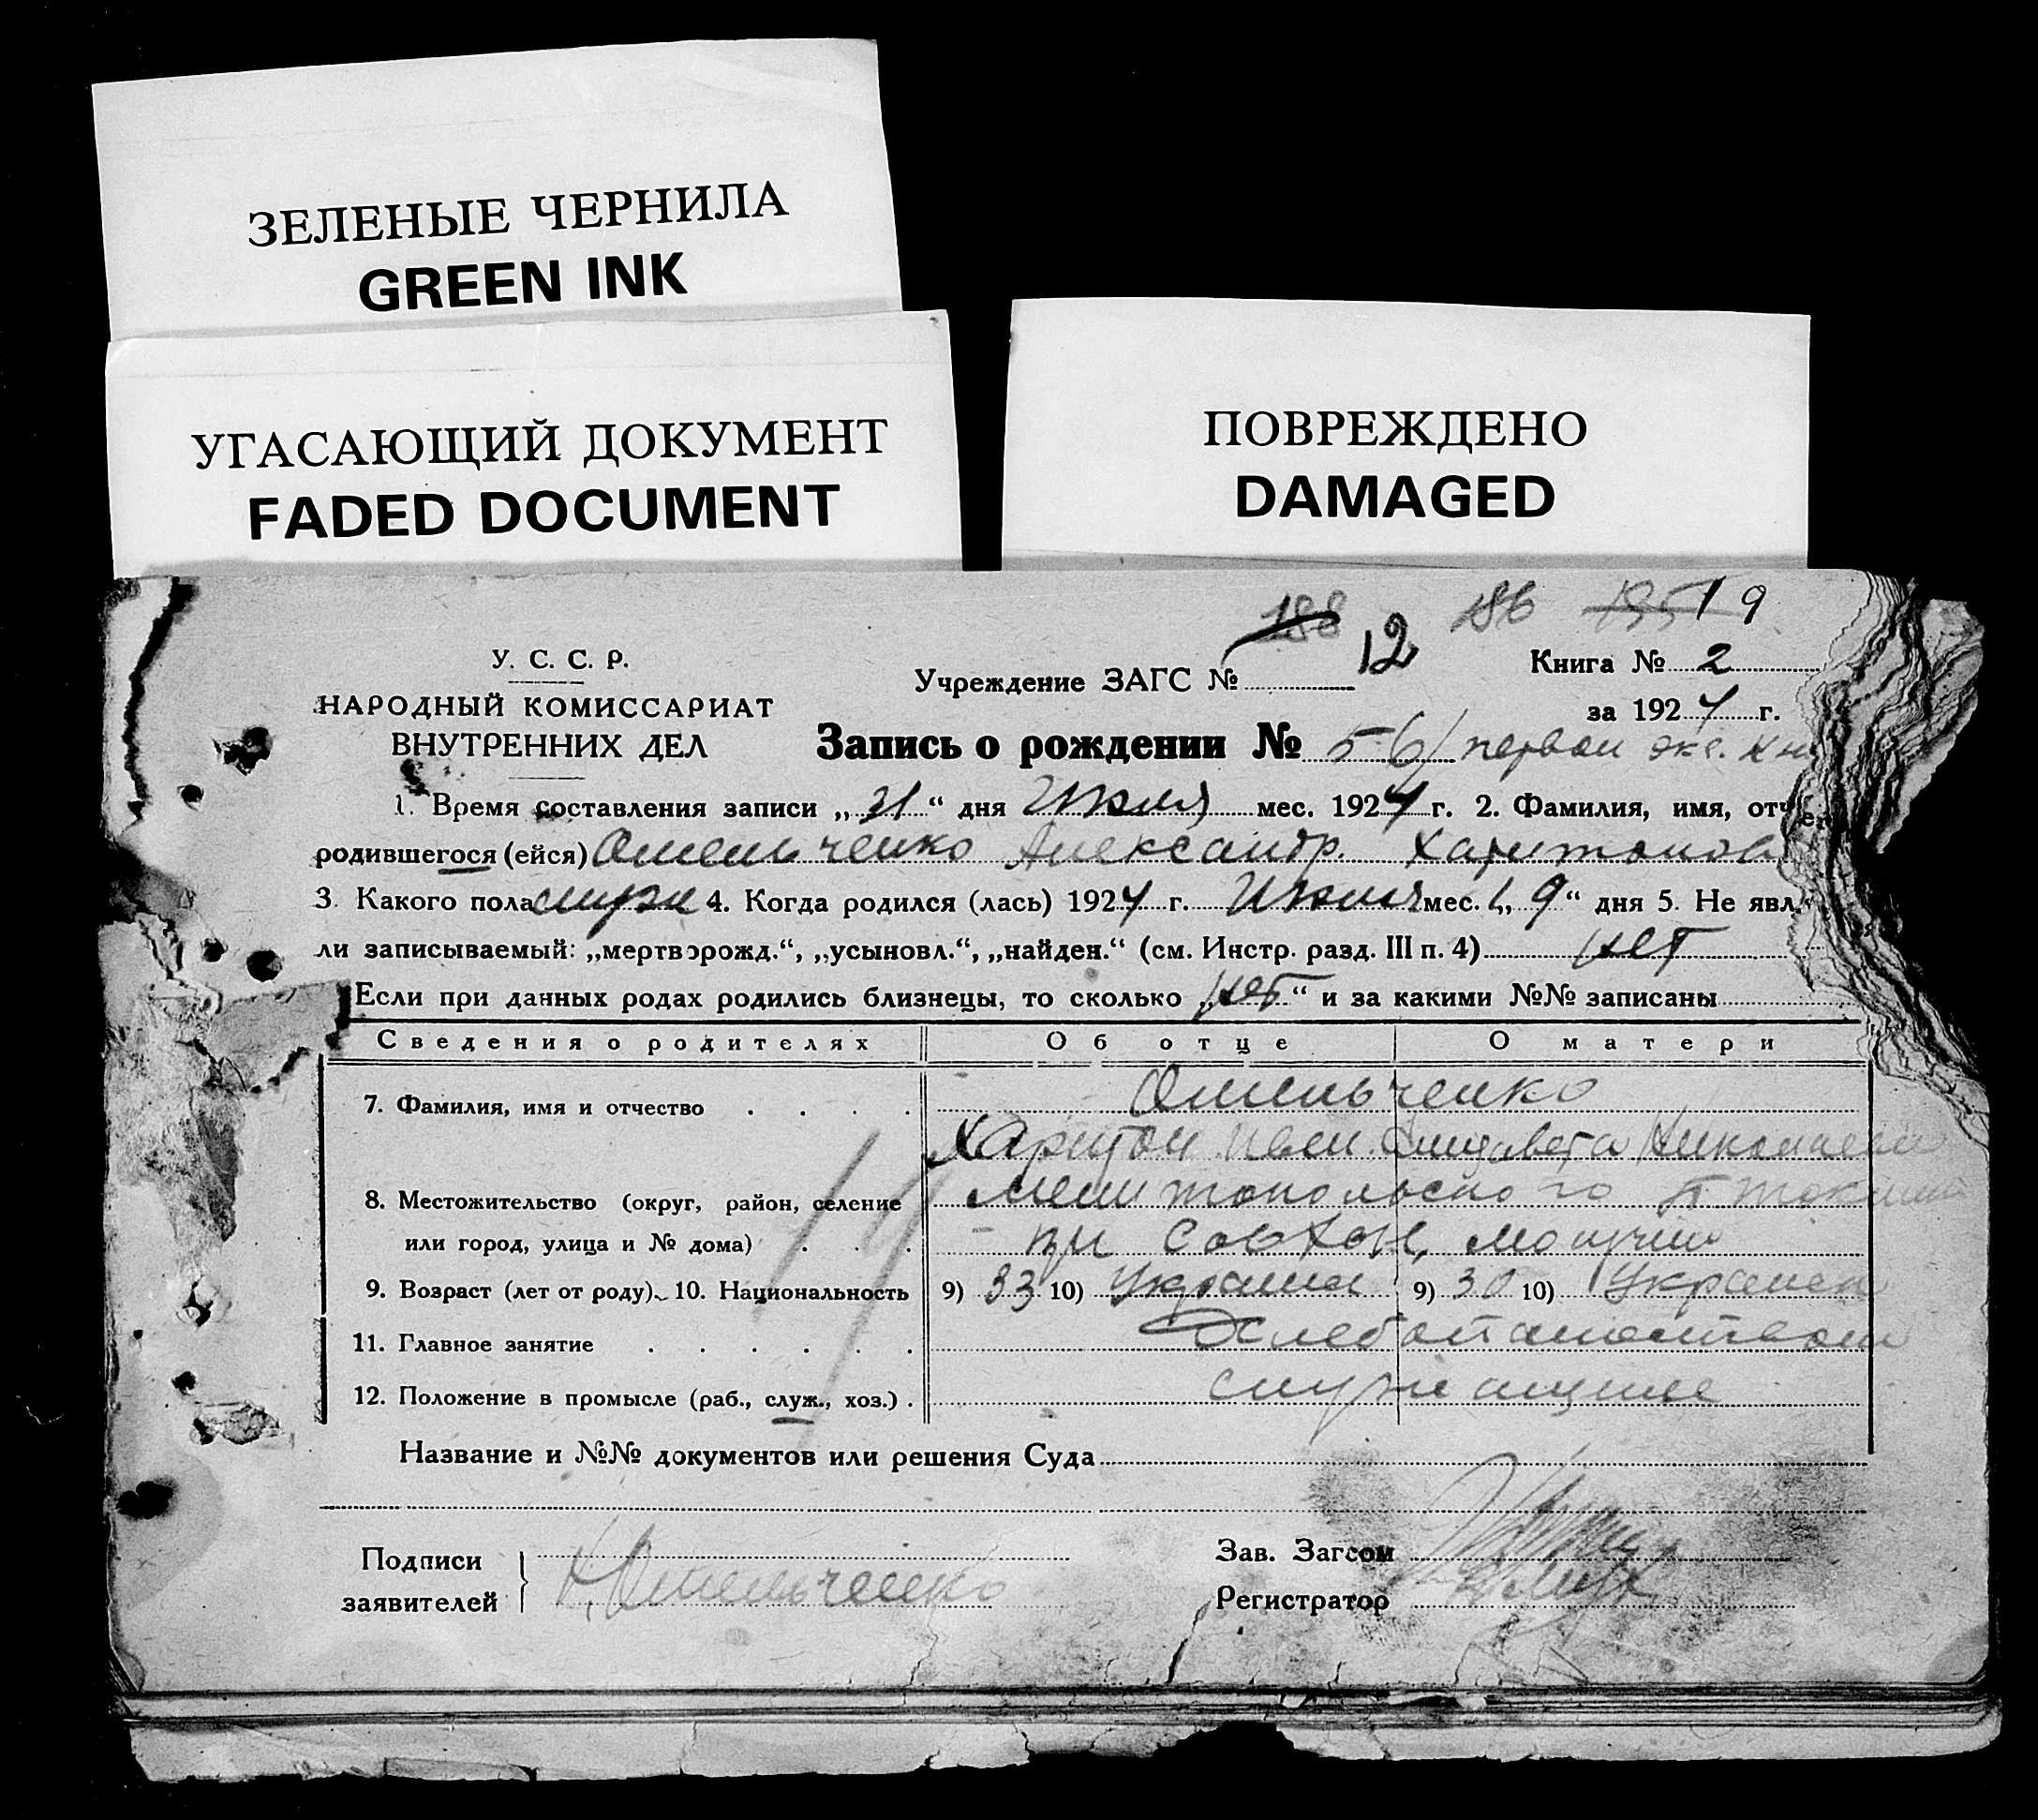 ЗЕЛЕНЫЕ ЧЕРНИЛА
GREEN INK
УГАСАЮЩИЙ ДОКУМЕНТ
FADED DOCUMENT
ПОВРЕЖДЕНО
DAMAGED
188 12 186 19
У. С. С. Р.
НАРОДНЫЙ КОМИССАРИАТ
ВНУТРЕННИХ ДЕЛ
Учреждение ЗАГС №
Книга № 2
за 1924 г.
Запись о рождении № 56 первой экс. кн
1. Время составления записи „31“ дня Июля мес. 1924 г. 2. Фамилия, имя, отче
родившегося (ейся) Омельченко Александр. Харитонов
3. Какого пола мужс 4. Когда родился (лась) 1924 г. Июля мес. „19“ дня 5. Не явл
ли записываемый: „мертворожд.“, „усыновл.“, „найден.“ (см. Инстр. разд. III п. 4) нет
Если при данных родах родились близнецы, то сколько „нет“ и за какими №№ записаны
Сведения о родителях Об отце О матери
7. Фамилия, имя и отчество Омельченко
Харитон Елизавета Николаевн
8. Местожительство (округ, район, селение Мелитопольского
или город, улица и № дома) при
9. Возраст (лет от роду). 10. Национальность 9) 33 10) Украин 9) 30 10) Украин
11. Главное занятие Хлебопашеством
12. Положение в промысле (раб., служ., хоз.) служащие
Название и №№ документов или решения Суда
Подписи
заявителей
Х. Омельченко
Зав. Загсом
Регистратор